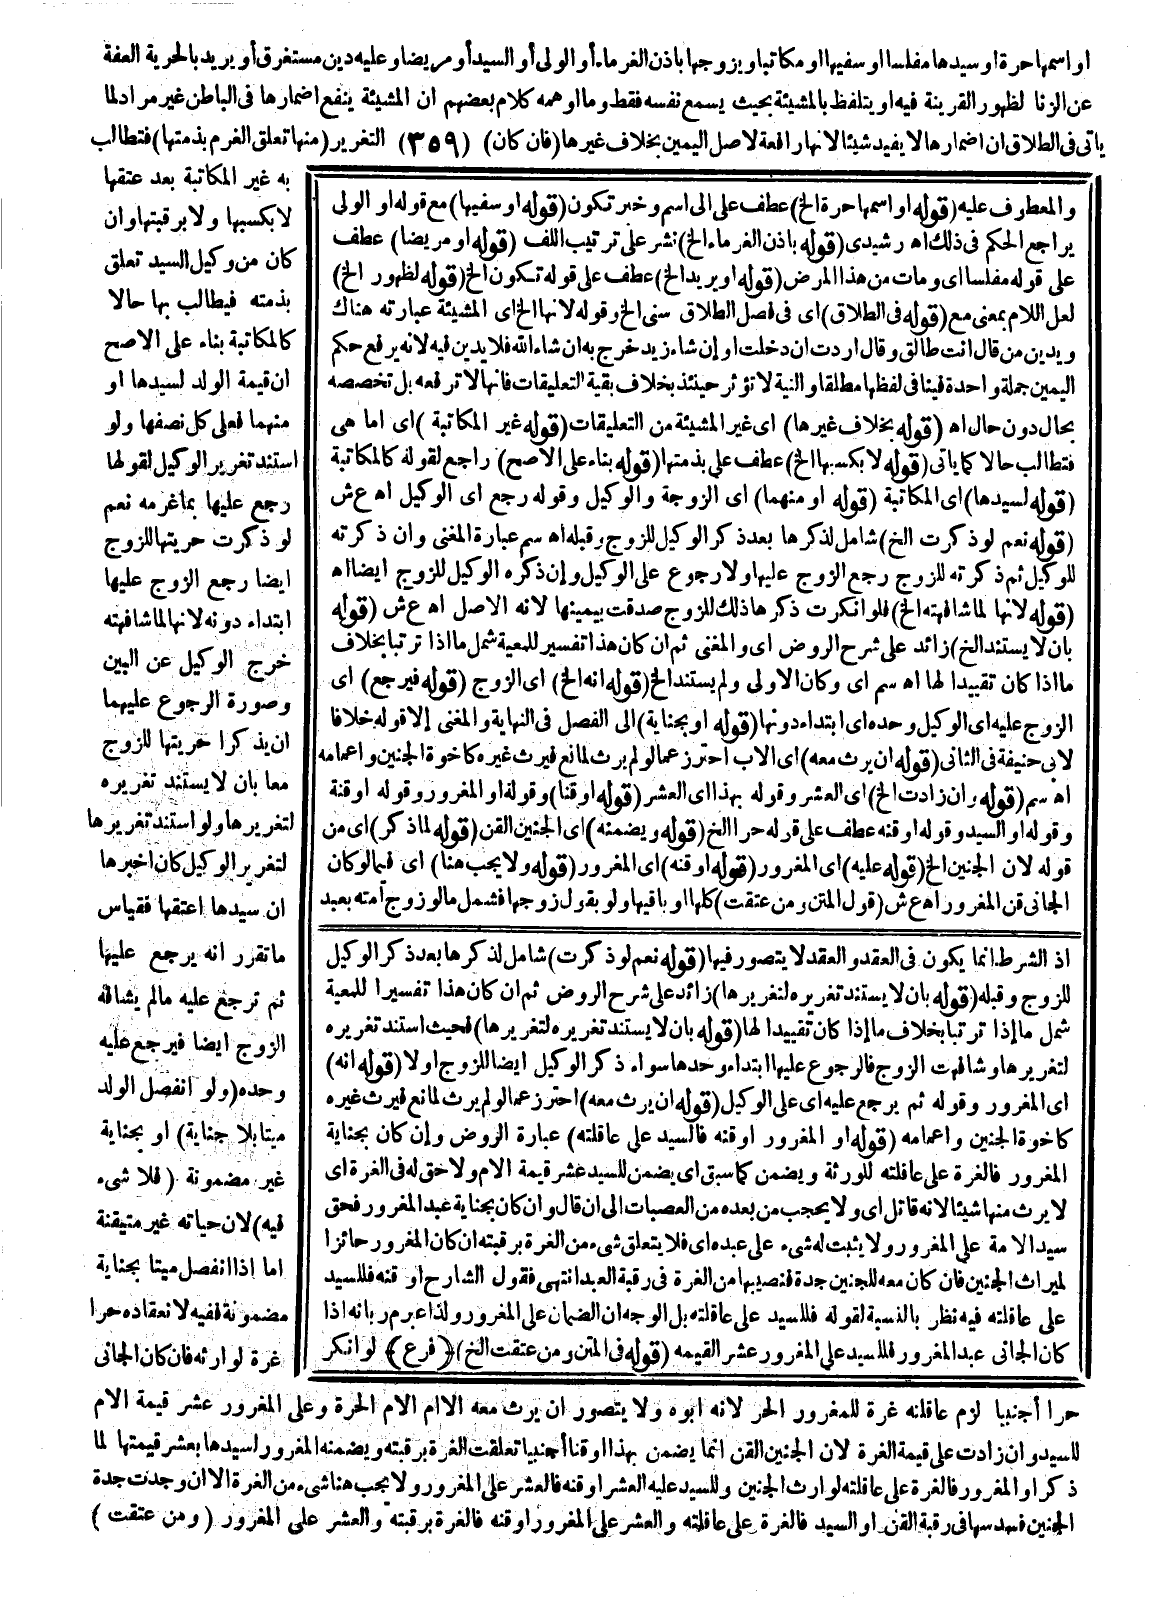 او اسمها حرة او سيدها مفلسا او سفيها او مكاتبا ويزوجها باذن الغرماء أو الولى أو السيد أو مريضا وعليه دين مستغرق أو يريد بالحرية العفة
عن الزنا لظهور القرينة فيه او يتلفظ بالمشيئة بحيث يسمع نفسه فقط وما اوهمه كلام بعضهم ان المشيئة ينفع اضمارها فى الباطن غير مراد لما
ياتى فى الطلاق ان اضمارها لا يفيد شيئا لانها رافعة لاصل اليمين بخلاف غيرها (فان كان) (٣٥٩) التغرير (منها تعلق الغرم بذمتها) فتطالب
به غير المكاتبة بعد عتقها
لا بكسبها ولا برقبتها وان
كان من وكيل السيد تعلق
بذمته فيطالب بها حالا
كالمكاتبة بناء على الاصح
ان قيمة الولد لسيدها او
منهما فعلى كل نصفها ولو
استند تغرير الوكيل لقولها
رجع عليها بما غرمه نعم
لو ذكرت حريتها للزوج
ايضا رجع الزوج عليها
ابتداء دونه لانها لما شافهته
خرج الوكيل عن البين
وصورة الرجوع عليهما
ان يذكرا حريتها للزوج
معا بان لا يستند تغريره
لتغريرها ولو استند تغريرها
لتغرير الوكيل كان اخبرها
ان سيدها اعتقها فقياس
ما تقرر انه يرجع عليها
ثم ترجع عليه مالم يشافه
الزوج ايضا فيرجع عليه
وحده (ولو انفصل الولد
ميتا بلا جناية) او بجناية
غير مضمونة (فلا شىء
فيه) لان حياته غير متيقنة
اما إذا انفصل ميتا بجناية
مضمونة ففيه لانعقاده حرا
غرة لوارثه فان كان الجانى
حرا أجنبيا لزم عاقلته غرة للمغرور الحر لانه ابوه ولا يتصور ان يرث معه الا ام الام الحرة وعلى المغرور عشر قيمة الام
للسيد وان زادت على قيمة الغرة لان الجنين القن انما يضمن بهذا او قنا أجنبيا تعلقت الغرة برقبته ويضمنه المغرور لسيدها بعشر قيمتها لما
ذكر او المغرور فالغرة على عاقلته لوارث الجنين وللسيد عليه العشر او قنه فالعشر على المغرور ولا يجب هنا شىء من الغرة الا ان وجدت جدة
الجنين فسدسها فى رقبة القن او السيد فالغرة على عاقلته والعشر على المغرور او قنه فالغرة برقبته والعشر على المغرور (ومن عتقت)
والمعطوف عليه (قوله او اسمها حرة الخ) عطف على الى اسم وخبر تكون (قوله او سفيها) مع قوله او الولى
يراجع الحكم فى ذلك اه رشيدى (قوله باذن الغرماء الخ) نشر على ترتيب اللف (قوله او مريضا) عطف
على قوله مفلسا اى ومات من هذا المرض (قوله او يريد الخ) عطف على قوله تكون الخ (قوله لظهور الخ)
لعل اللام بمعنى مع (قوله فى الطلاق) اى فى فصل الطلاق سنى الخ وقوله لانها الخ اى المشيئة عبارته هناك
ويدين من قال انت طالق وقال اردت ان دخلت او إن شاء زيد خرج به ان شاء الله فلا يدين فيه لانه يرفع حكم
اليمين جملة واحدة فينافى لفظها مطلقا والنية لا تؤثر حينئذ بخلاف بقية التعليقات فانها لا ترفعه بل تخصصه
بحال دون حال اه (قوله بخلاف غيرها) اى غير المشيئة من التعليقات (قوله غير المكاتبة) اى اما هى
فتطالب حالا كما ياتى (قوله لا بكسبها الخ) عطف على بذمتها (قوله بناء على الاصح) راجع لقوله كالمكاتبة
(قوله لسيدها) اى المكاتبة (قوله او منهما) اى الزوجة والوكيل وقوله رجع اى الوكيل اه ع ش
(قوله نعم لو ذكرت الخ) شامل لذكرها بعد ذكر الوكيل للزوج وقبله اه سم عبارة المغنى وان ذكرته
للوكيل ثم ذكرته للزوج رجع الزوج عليها ولا رجوع على الوكيل وإن ذكره الوكيل للزوج ايضا اه
(قوله لانها لما شافهته الخ) فلو انكرت ذكرها ذلك للزوج صدقت بيمينها لانه الاصل اه ع ش (قوله
بان لا يستند الخ) زائد على شرح الروض اى والمغنى ثم ان كان هذا تفسير للمعية شمل ما اذا ترتبا بخلاف
ما اذا كان تقييدا لها اه سم اى وكان الاولى ولم يستند الخ (قوله انه الخ) اى الزوج (قوله فيرجع) اى
الزوج عليه اى الوكيل وحده اى ابتداء دونها (قوله او بجناية) الى الفصل فى النهاية والمغنى إلا قوله خلافا
لابى حنيفة فى الثانى (قوله ان يرث معه) اى الاب احترز عما لو لم يرث لمانع فيرث غيره كاخوة الجنين واعمامه
اه سم (قوله وان زادت الخ) اى العشر وقوله بهذا اى العشر (قوله او قنا) وقوله او المغرور وقوله او قنة
وقوله او السيد وقوله او قنه عطف على قوله حرا الخ (قوله ويضمنه) اى الجنين القن (قوله لما ذكر) اى من
قوله لان الجنين الخ (قوله عليه) اى المغرور (قوله او قنه) اى المغرور (قوله ولا يجب هنا) اى فيما لو كان
الجانى قن المغرور اه ع ش (قول المتن ومن عتقت) كلها او باقيها ولو بقول زوجها فشمل ما لو زوج أمته بعبد
اذ الشرط انما يكون فى العقد والعقد لا يتصور فيها (قوله نعم لو ذكرت) شامل لذكرها بعد ذكر الوكيل
للزوج وقبله (قوله بان لا يستند تغريره لتغريرها) زائد على شرح الروض ثم ان كان هذا تفسيرا للمعية
شمل ما إذا ترتبا بخلاف ما إذا كان تقييدا لها (قوله بان لا يستند تغريره لتغريرها) فحيث استند تغريره
لتغريرها وشافهت الزوج فالرجوع عليها ابتداء وحدها سواء ذكر الوكيل ايضا للزوج اولا (قوله انه)
اى المغرور وقوله ثم يرجع عليه اى على الوكيل (قوله ان يرث معه) احترز عما لو لم يرث لمانع فيرث غيره
كاخوة الجنين واعمامه (قوله او المغرور او قنه فالسيد على عاقلته) عبارة الروض وإن كان بجناية
المغرور فالغرة على عاقلته للورثة ويضمن كما سبق اى يضمن للسيد عشر قيمة الام ولا حق له فى الغرة اى
لا يرث منها شيئا لانه قاتل اى ولا يحجب من بعده من العصبات الى ان قال وان كان بجناية عبد المغرور فحق
سيد الامة على المغرور ولا يثبت له شىء على عبده اى فلا يتعلق شىء من الغرة برقبته ان كان المغرور حائزا
لميراث الجنين فان كان معه للجنين جدة فنصيبها من الغرة فى رقبة العبد انتهى فقول الشارح او قنه فللسيد
على عاقلته فيه نظر بالنسبة لقوله فللسيد على عاقلته بل الوجه ان الضمان على المغرور ولذا عبر م ر بانه اذا
كان الجانى عبد المغرور فللسيد على المغرور عشر القيمه (قوله فى المتن ومن عتقت الخ) (فرع) لو انكر